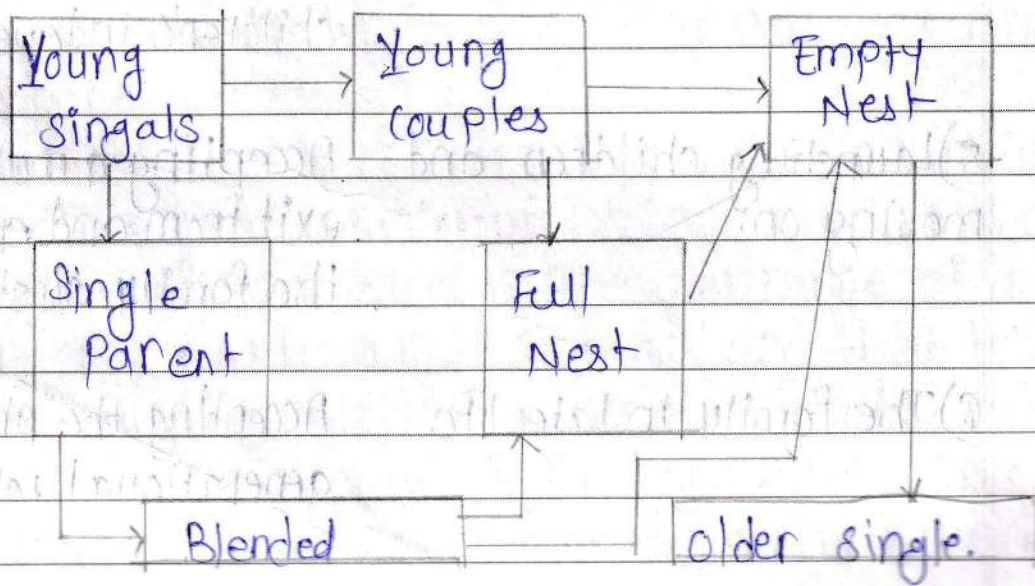 Young
singals.
Young
couples
Empty
Nest
Single
Parent
Full
Nest
Blended
older single.